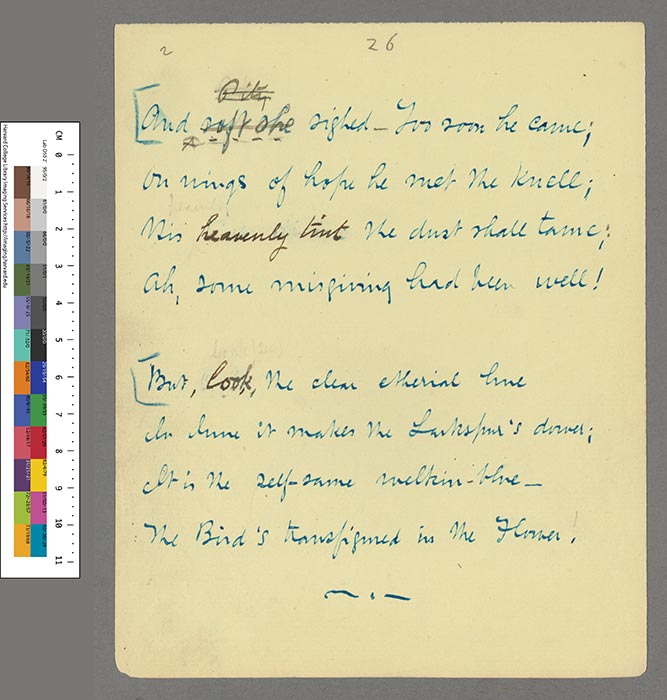 2 26
Pity
And soft she sighed — Too soon he came;
On wings of hope he met the knell;
His heavenly tint the dust shall tame;
Ah, some misgiving had been well!
But, look, the clear etherial hue
In June it makes the Larkspur's dower;
It is the self-same welkin-blue —
The Bird's transfigured in the Flower!
CM 0 1 2 3 4 5 6 7 8 9 10 11
Harvard College Library Imaging Services http://imaging.harvard.edu